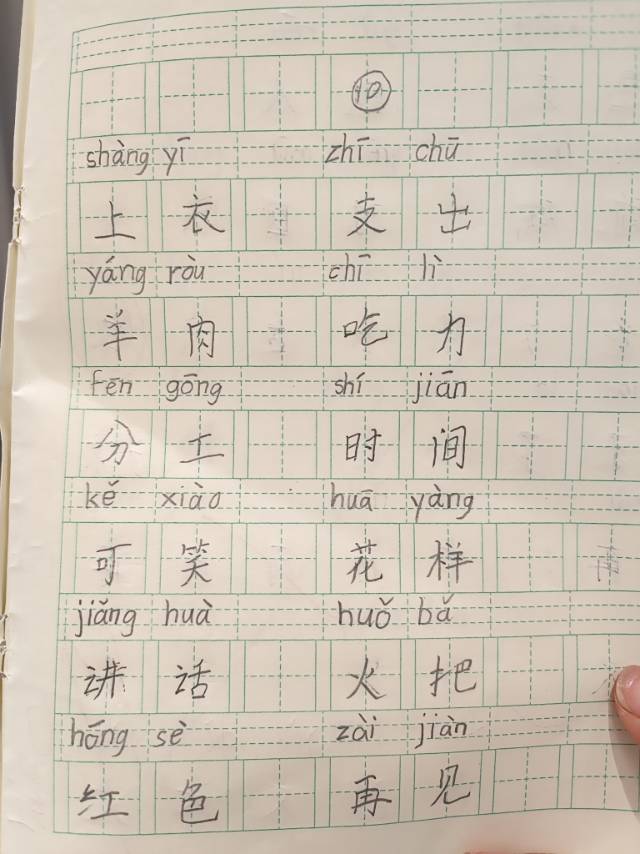 10
shàng yī zhī chū
上衣 支出
yáng ròu chī lì
羊肉 吃力
fēn gōng shí jiān
分工 时间
kě xiào huā yàng
可笑 花样
jiǎng huà huǒ bǎ
讲话 火把
hóng sè zài jiàn
红色 再见